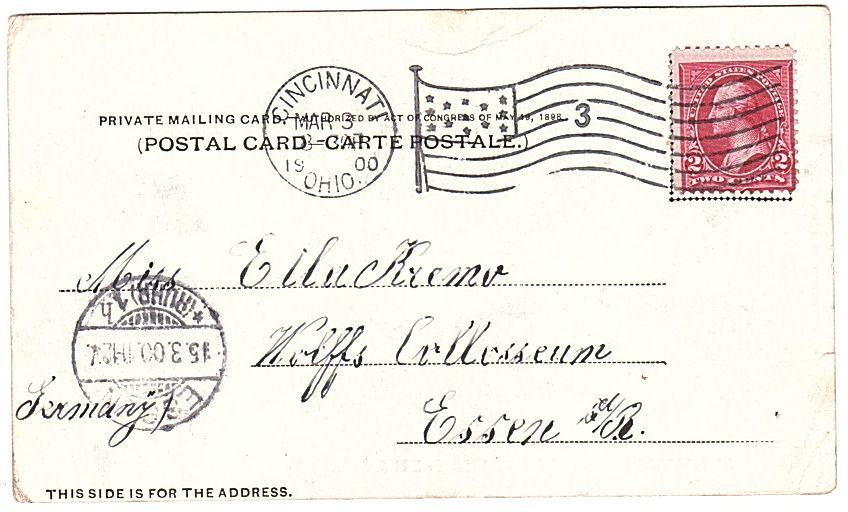 CINCINNATI
MAR 3
19 00
OHIO.
3
UNITED STATES POSTAGE
2 2
TWO CENTS
PRIVATE MAILING CARD, AUTHORIZED BY ACT OF CONGRESS OF MAY 19, 1898.
(POSTAL CARD—CARTE POSTALE.)
Miss Ella Kremo
Wolffs Collosseum
Essen a/d R.
Germany
* (RUHR) 1 h
15.3.00.
THIS SIDE IS FOR THE ADDRESS.